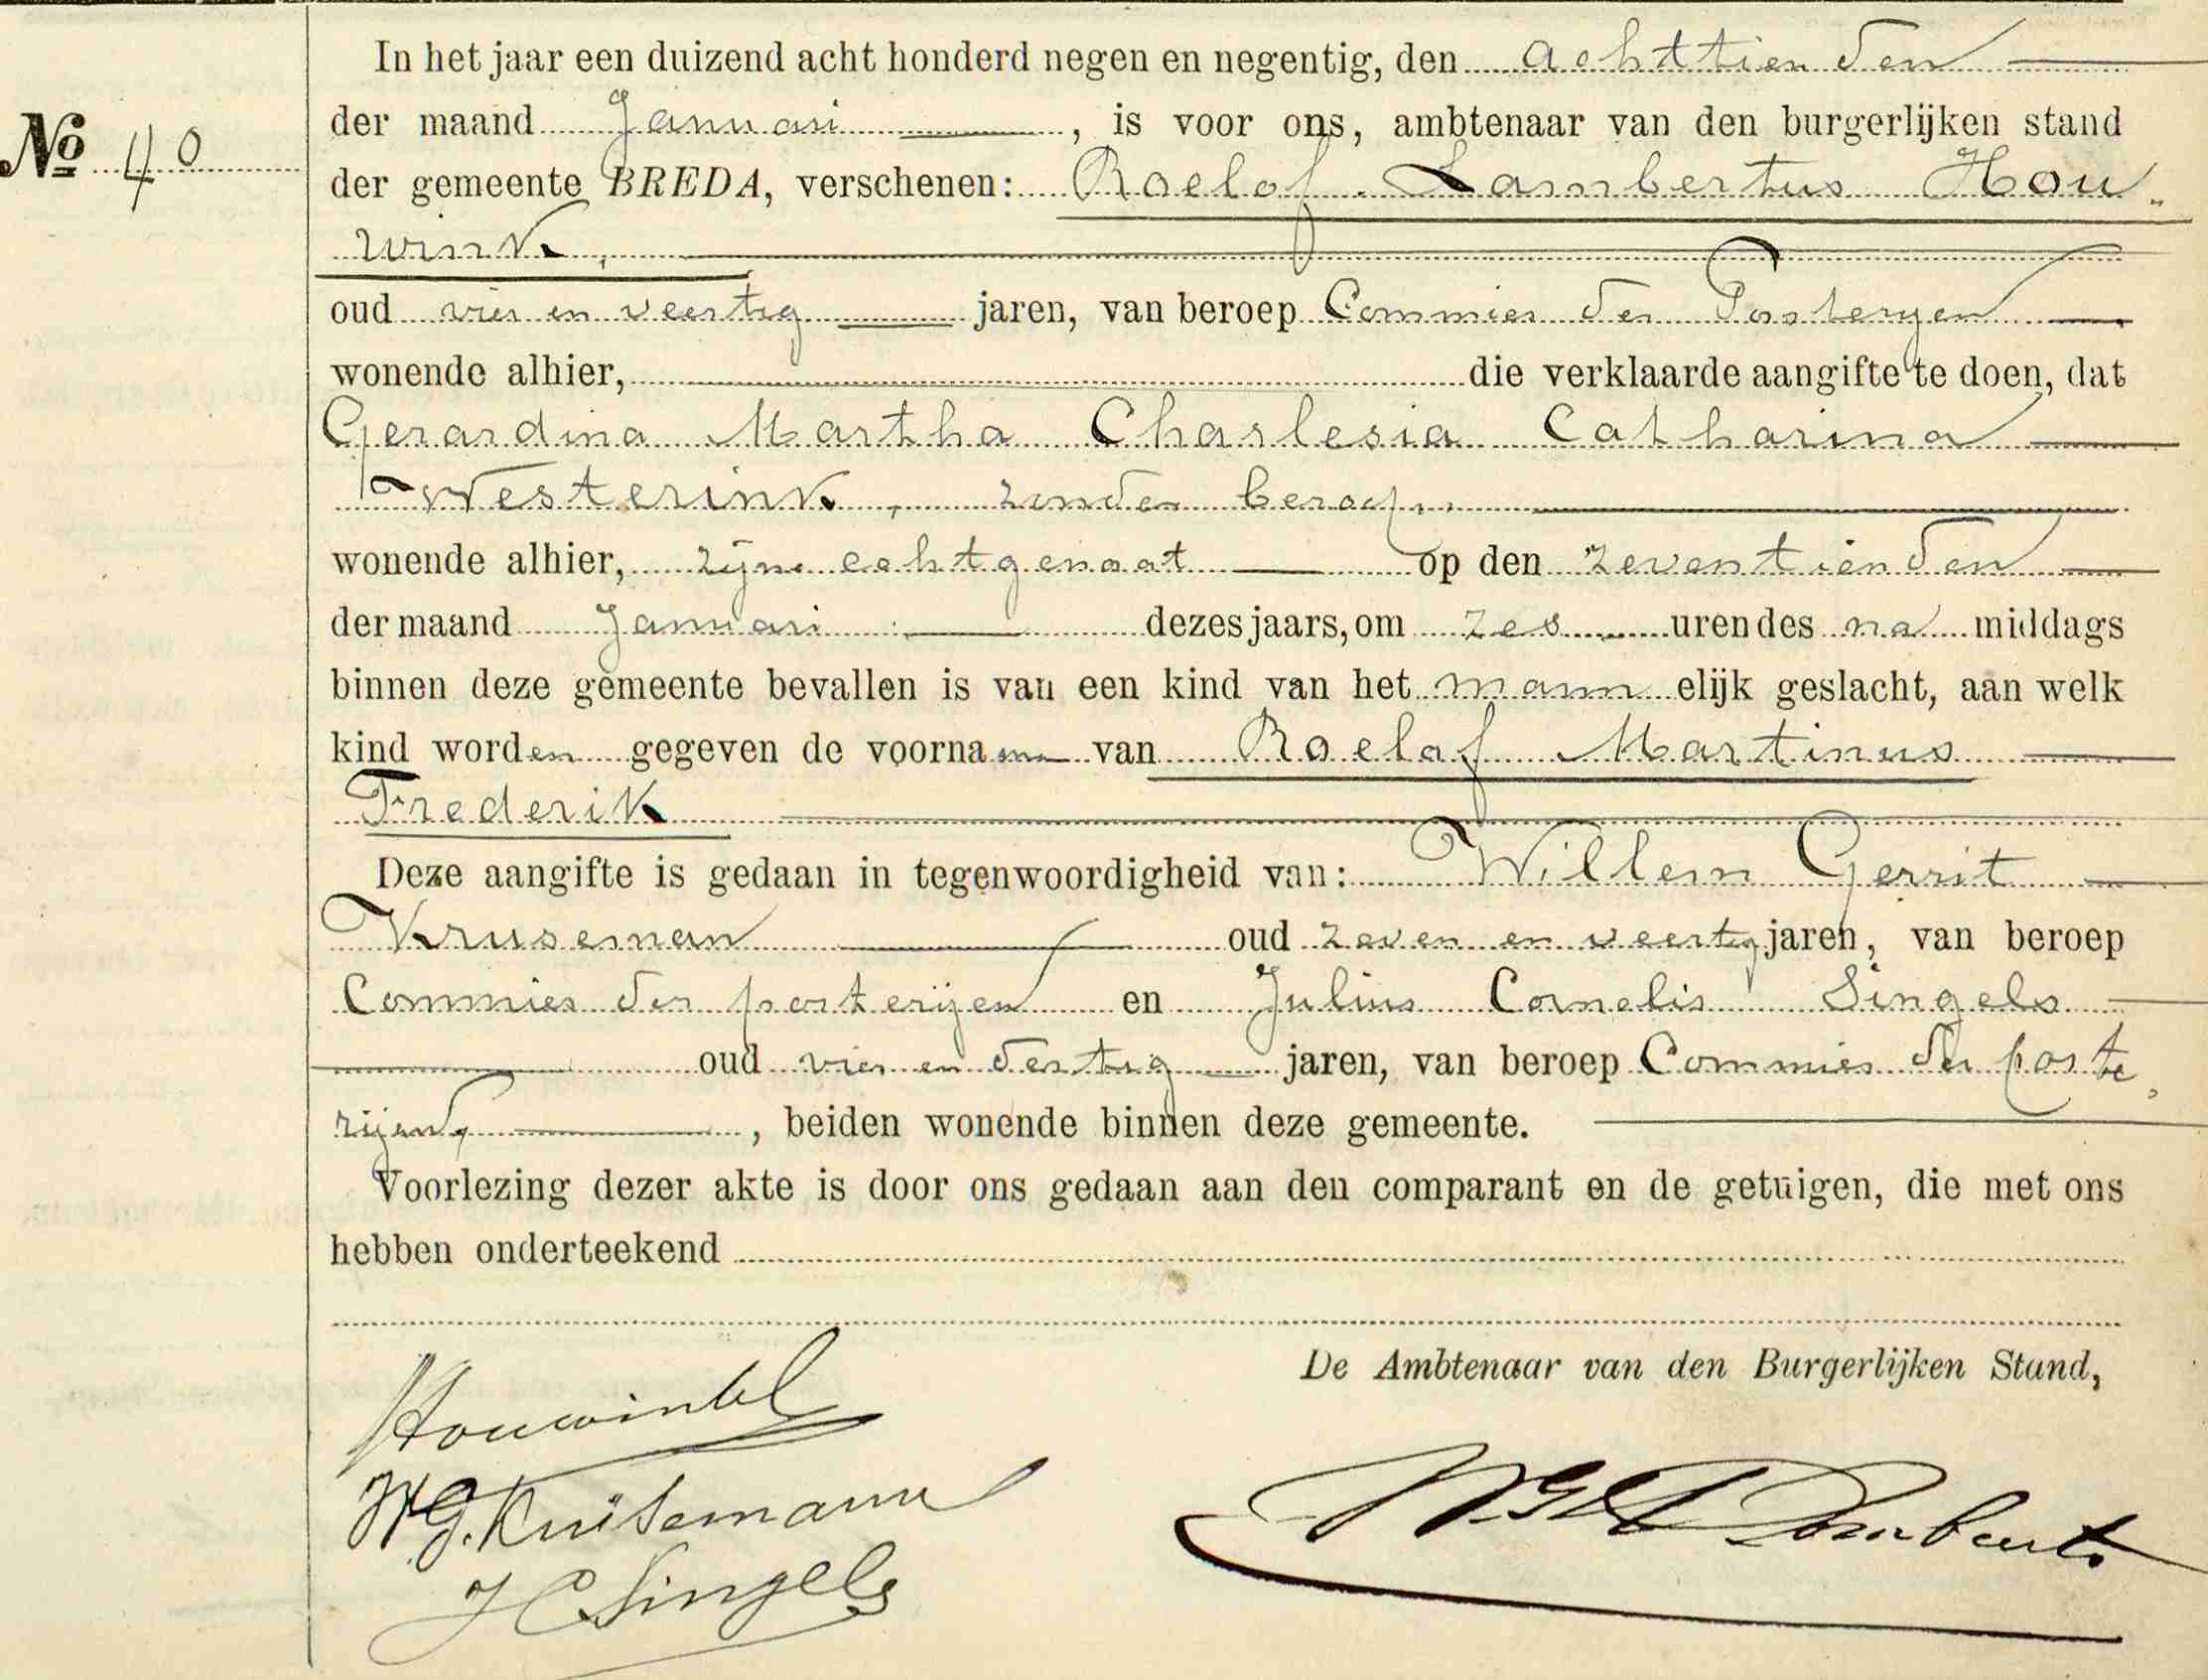 In het jaar een duizend acht honderd negen en negentig, den achttienden
der maand Januari, is voor ons, ambtenaar van den burgerlijken stand
No 40
der gemeente BREDA, verschenen: Roelof Lambertus Hou„
wink,
oud vier en veertig jaren, van beroep Commies der Posteryen
wonende alhier, die verklaarde aangifte te doen, dat
Gerardina Martha Charlesia Catharina
Westerink, zonder beroep,
wonende alhier, zijne echtgenoot op den zeventienden
der maand Januari dezes jaars, om zes uren des na middags
binnen deze gemeente bevallen is van een kind van het mannelijk geslacht, aan welk
kind worden gegeven de voornamen van Roelof Martinus
Frederik
Deze aangifte is gedaan in tegenwoordigheid van: Willem Gerrit
Kruseman oud zeven en veertig jaren, van beroep
Commies der posterijen en Julius Cornelis Singels
oud vier en dertig jaren, van beroep Commies der poste„
rijen, beiden wonende binnen deze gemeente.
Voorlezing dezer akte is door ons gedaan aan den comparant en de getuigen, die met ons
hebben onderteekend
De Ambtenaar van den Burgerlijken Stand,
Houwink
WG. Krüsemann
JC Singels